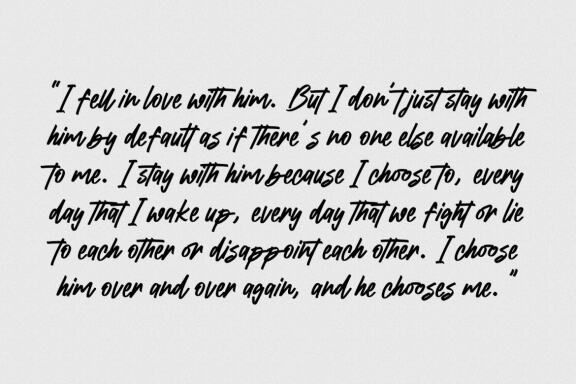 "I fell in love with him. But I don't just stay with
him by default as if there's no one else available
to me. I stay with him because I choose to, every
day that I wake up, every day that we fight or lie
to each other or disappoint each other. I choose
him over and over again, and he chooses me."